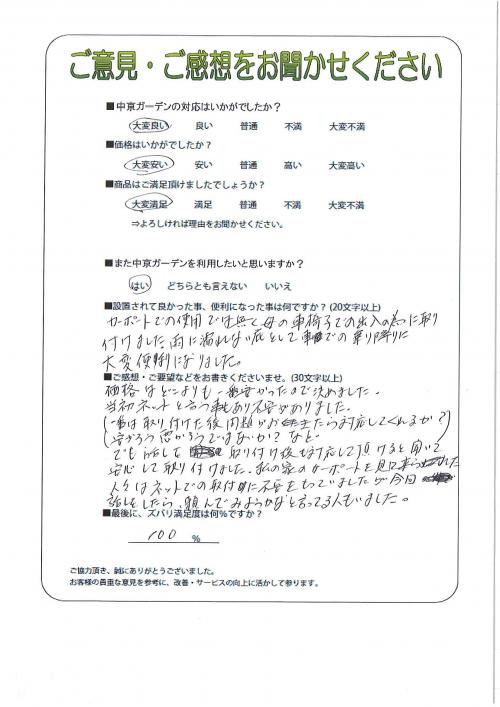 ご意見・ご感想をお聞かせください
■中京ガーデンの対応はいかがでしたか？
大変良い 良い 普通 不満 大変不満
■価格はいかがでしたか？
大変安い 安い 普通 高い 大変高い
■商品はご満足頂けましたでしょうか？
大変満足 満足 普通 不満 大変不満
⇒よろしければ理由をお聞かせください。
■また中京ガーデンを利用したいと思いますか？
はい どちらとも言えない いいえ
■設置されて良かった事、便利になった事は何ですか？(20文字以上)
カーポートでの使用では無く母の車椅子での出入の為に取り
付けました。雨に濡れない庇として での乗り降りに
大変便利になりました。
■ご感想・ご要望などをお書きくださいませ。(30文字以上)
価格はどこよりも一番安かったので決めました。
当初ネットと言う事もあり不安がありました。
(一番は取り付けた後問題がおきたら対応してくれるか？)
安かろう悪かろうではないか？など
でも話して 取り付け後も対応して頂けると聞いて
安心して取り付けました。私の家のカーポートを見に来られた
人々はネットでの取付に不安をもっていましたが今回
話をしたら、頼んでみようかなと言ってる人もいました。
■最後に、ズバリ満足度は何％ですか？
100 ％
ご協力頂き、誠にありがとうございました。
お客様の貴重な意見を参考に、改善・サービスの向上に活かして参ります。